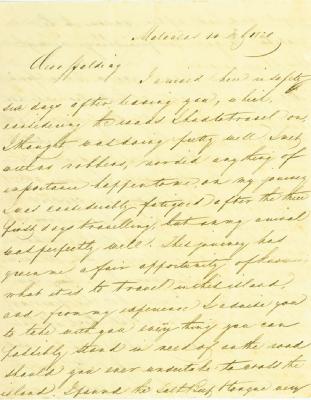 Dear Fielding
I arrived here in safety
six days after leaving you, which,
considering the roads I had to travel on,
I thought was doing pretty well. I met
with no robbers, nor did anything of
importance happen to me, on my journey
I was considerably fatigued after the three
first days travelling, but on my arrival
was perfectly well. This journey has
given me a fair opportunity of
what it is to travel in this island,
and from my experience I advise you
to take with you every thing you can
possibly stand in need of on the road
should you ever undertake to cross the
island. I found the Salt Beef & Tongue very